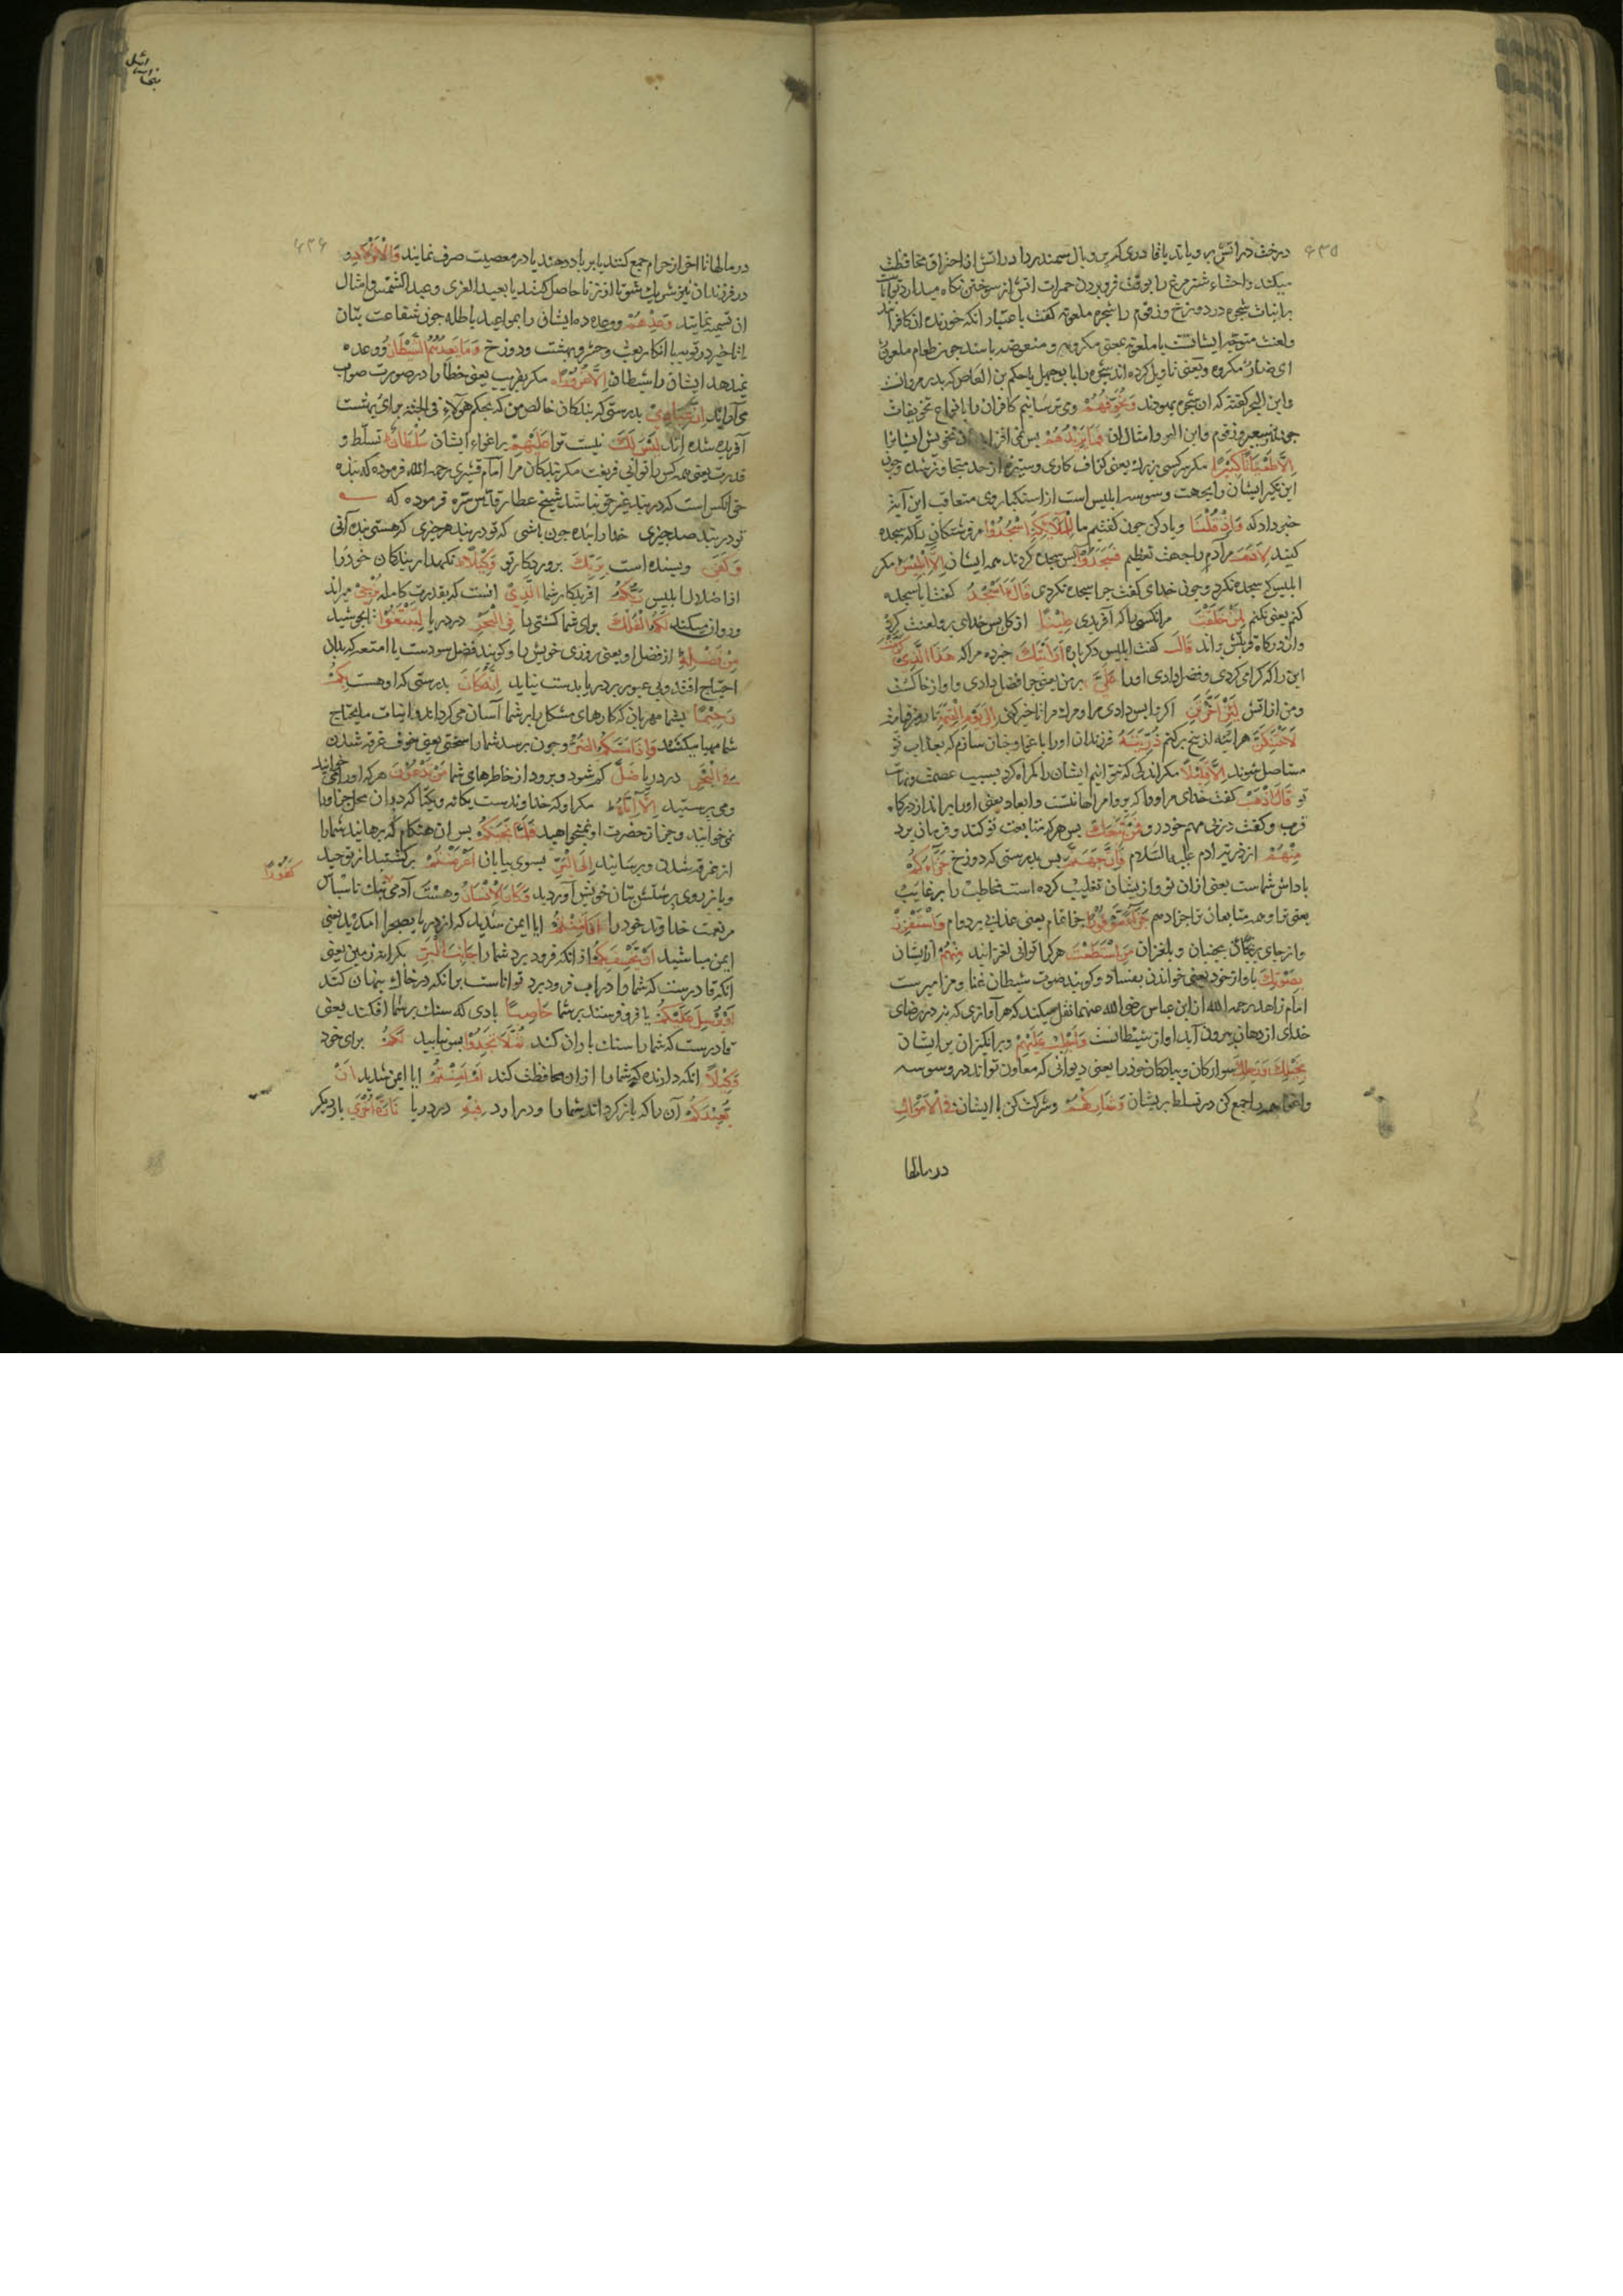 ۶۳۵
درخت در اتش برویاند یا قادری که پر و بال سمندر را در اتش از احتراق محافظت
میکند واحشاء شترمرغ را بوقت فرو بردن جمرات اتش از سوختن نکاه میدارد تواناست
بر اثبات شجره در دوزخ وزقوم را شجره ملعونه کفت باعتبار انکه خورنده ان کافرانند
ولعنت متوجه ایشانست یا ملعونه بمعنی مکروهه
ای ضار مکروه وبعضی تاویل کرده اند شجره را بابو جهل یا حکم بن العاص که پدر مروانست
وَنُخَوِّفُهُمْ ومی ترسانیم کافران را بانواع تخویفات
فَمَا يَزِيدُهُمْ پس نمی افزاید ان تخویف ایشانرا
اِلَّا طُغْيَانًا كَبِيرًا مکر سرکشی بزرك یعنی
این تکبر ایشان را بجهت وسوسه ابلیس است از استکبار وی متعاقب این آیت
خبر داد که وَاِذْ قُلْنَا ویاد کن چون کفتیم ما لِلْمَلَائِكَةِ اسْجُدُوا مر فرشتکان را که سجده
کنید لِاٰدَمَ مر آدم را جهت تعظیم فَسَجَدُوا پس سجده کردند همه ایشان اِلَّا اِبْلِيسَ مکر
ابلیس که سجده نکرد وچون خدای کفت چرا سجده نکردی قَالَ ءَاَسْجُدُ کفت ایا سجده
کنم یعنی نکنم لِمَنْ خَلَقْتَ مر انکسی را که آفریدی طِينًا از کل پس خدای برو لعنت کرد
واز درکاه قربش براند قَالَ کفت ابلیس دکرباره اَرَاَيْتَكَ خبر ده مرا که هٰذَا الَّذِي كَرَّمْتَ
این را که کرامی کردی وفضل دادی اورا عَلَيَّ بر من یعنی چرا فضل دادی واو از خاکست
ومن از اتش لَئِنْ اَخَّرْتَنِ اکر واپس داری مرا ومرك مرا تاخیر کنی اِلٰى يَوْمِ الْقِيٰمَةِ تا روز قیامت
لَاَحْتَنِكَنَّ هر اینه از بیخ برکنم ذُرِّيَّتَهُ فرزندان اورا باغوا وچنان سازم که بعذاب تو
مستاصل شوند اِلَّا قَلِيلًا مکر اندکی که نتوانیم ایشان را کمراه کرد بسبب عصمت
تو قَالَ اذْهَبْ کفت خدای مر اورا که برو
قرب وکفت در پی مهم خود رو فَمَنْ تَبِعَكَ پس هرکه متابعت تو کند وفرمان برد
مِنْهُمْ از ذریة ادم علیه السلام فَاِنَّ جَهَنَّمَ پس بدرستی که دوزخ جَزَاؤُكُمْ
پاداش شماست یعنی ازان تو وازیشان تغلیب کرده است مخاطب را بر غایب
یعنی ترا وهمه متابعان ترا جزا دهم جَزَاءً مَوْفُورًا جزای تمام یعنی عذابی بر دوام وَاسْتَفْزِزْ
واز جای بجنبان وبلغزان مَنِ اسْتَطَعْتَ هرکه را توانی لغزانید مِنْهُمْ از ایشان
بِصَوْتِكَ باواز خود یعنی خواندن بفساد وکویند صوت شیطان غنا ومزامیرست
امام زاهد رحمه الله از ابن عباس رضی الله عنهما نقل میکند که هر آوازی که نه در رضای
خدای از دهان بیرون آید اواز شیطانست وَاَجْلِبْ عَلَيْهِمْ وبرانکیزان بر ایشان
بِخَيْلِكَ وَرَجِلِكَ سوارکان وپیادکان خود را یعنی دیوانی که معاون تواند در وسوسه
واغوا همه را جمع کن در تسلط بریشان وَشَارِكْهُمْ وشرکت کن با ایشان فِي الْاَمْوَالِ
در مالها
۶۳۶
در مالها تا اخر از حرام جمع کنند یا بربا دهند یا در معصیت صرف نمایند وَالْاَوْلَادِ و
در فرزندان نیز شریك شو تا از زنا حاصل کنند یا بعبد العزی وعبد الشمس وامثال
ان تسمیه نمایند وَعِدْهُمْ ووعده ده ایشان را بمواعید باطله چون شفاعت بتان
یا تاخیر در توبه یا انکار بعث وحشر وبهشت ودوزخ وَمَا يَعِدُهُمُ الشَّيْطَانُ ووعده
نمیدهد ایشان را شیطان اِلَّا غُرُورًا مکر بفریب یعنی خطا را در صورت صواب
می آراید اِنَّ عِبَادِي بدرستی که بندکان خالص من که بحکم هؤلاء فی الجنة برای بهشت
آفریده شده اند لَيْسَ لَكَ نیست ترا عَلَيْهِمْ باغواء ایشان سُلْطَانٌ تسلط و
قدرت یعنی همه کس را توانی فریفت مکر بندکان مرا امام قشیری رحمه الله فرموده که بنده
حق انکس است که در بند غیر حق نباشد شیخ عطار قدس سره فرموده که
تو در بند صد چیزی خدا را بنده چون باشی که تو در بند هر چیزی که هستی بنده آنی
وَكَفٰى وبسنده است بِرَبِّكَ پروردکار تو وَكِيلًا نکهدار بندکان خود را
از اضلال ابلیس رَبُّكُمُ افریدکار شما الَّذِي انست که بقدرت کامله يُزْجِي میراند
وروان میکند لَكُمُ الْفُلْكَ برای شما کشتی را فِي الْبَحْرِ در دریا لِتَبْتَغُوا تا بجویید
مِنْ فَضْلِهٖ از فضل او یعنی روزی خویش را وکویند فضل سودست یا امتعه که بدان
احتیاج افتد وبی عبور بر دریا بدست نیاید اِنَّهُ كَانَ بدرستی که او هست بِكُمْ
رَحِيمًا بشما مهربان که کارهای مشکل را بر شما آسان می کرداند واسباب مایحتاج
شما مهیا میکند وَاِذَا مَسَّكُمُ الضُّرُّ وچون برسد شما را سختی یعنی خوف غرقه شدن
فِي الْبَحْرِ در دریا ضَلَّ کم شود وبرود از خاطرهای شما مَنْ تَدْعُونَ هرکه اورا می خوانید
ومی پرستید اِلَّا اِيَّاهُ مکر او که خداوندست یکانه ویکتا که دران محل جز اورا
نمی خوانید وجز از حضرت او نمی خواهید فَلَمَّا نَجّٰكُمْ پس ان هنکام که برهانید شما را
از غرقه شدن وبرسانید اِلَى الْبَرِّ بسوی بیابان اَعْرَضْتُمْ برکشتید از توحید
وباز روی بپرستش بتان خویش آوردید وَكَانَ الْاِنْسَانُ وهست آدمی ناسپاس
كَفُورًا
مر نعمت خداوند خود را اَفَاَمِنْتُمْ ایا ایمن شدید که از دریا بصحرا امدید یعنی
ایمن مباشید اَنْ يَخْسِفَ بِكُمْ از انکه فرو برد شما را جَانِبَ الْبَرِّ بکرانه زمین یعنی
انکه قادرست که شما را در اب فرو برد تواناست بر انکه در خاك پنهان کند
اَوْ يُرْسِلَ عَلَيْكُمْ یا فرو فرستد بر شما حَاصِبًا بادی که سنك بر شما افکند یعنی
قادرست که شما را سنك باران کند ثُمَّ لَا تَجِدُوا پس نیابید لَكُمْ برای خود
وَكِيلًا انکه دارنده که شما را ازان محافظت کند اَمْ اَمِنْتُمْ ایا ایمن شدید اَنْ
يُعِيدَكُمْ آن را که باز کرداند شما را ودر اورد فِيهِ در دریا تَارَةً اُخْرٰى بار دیکر